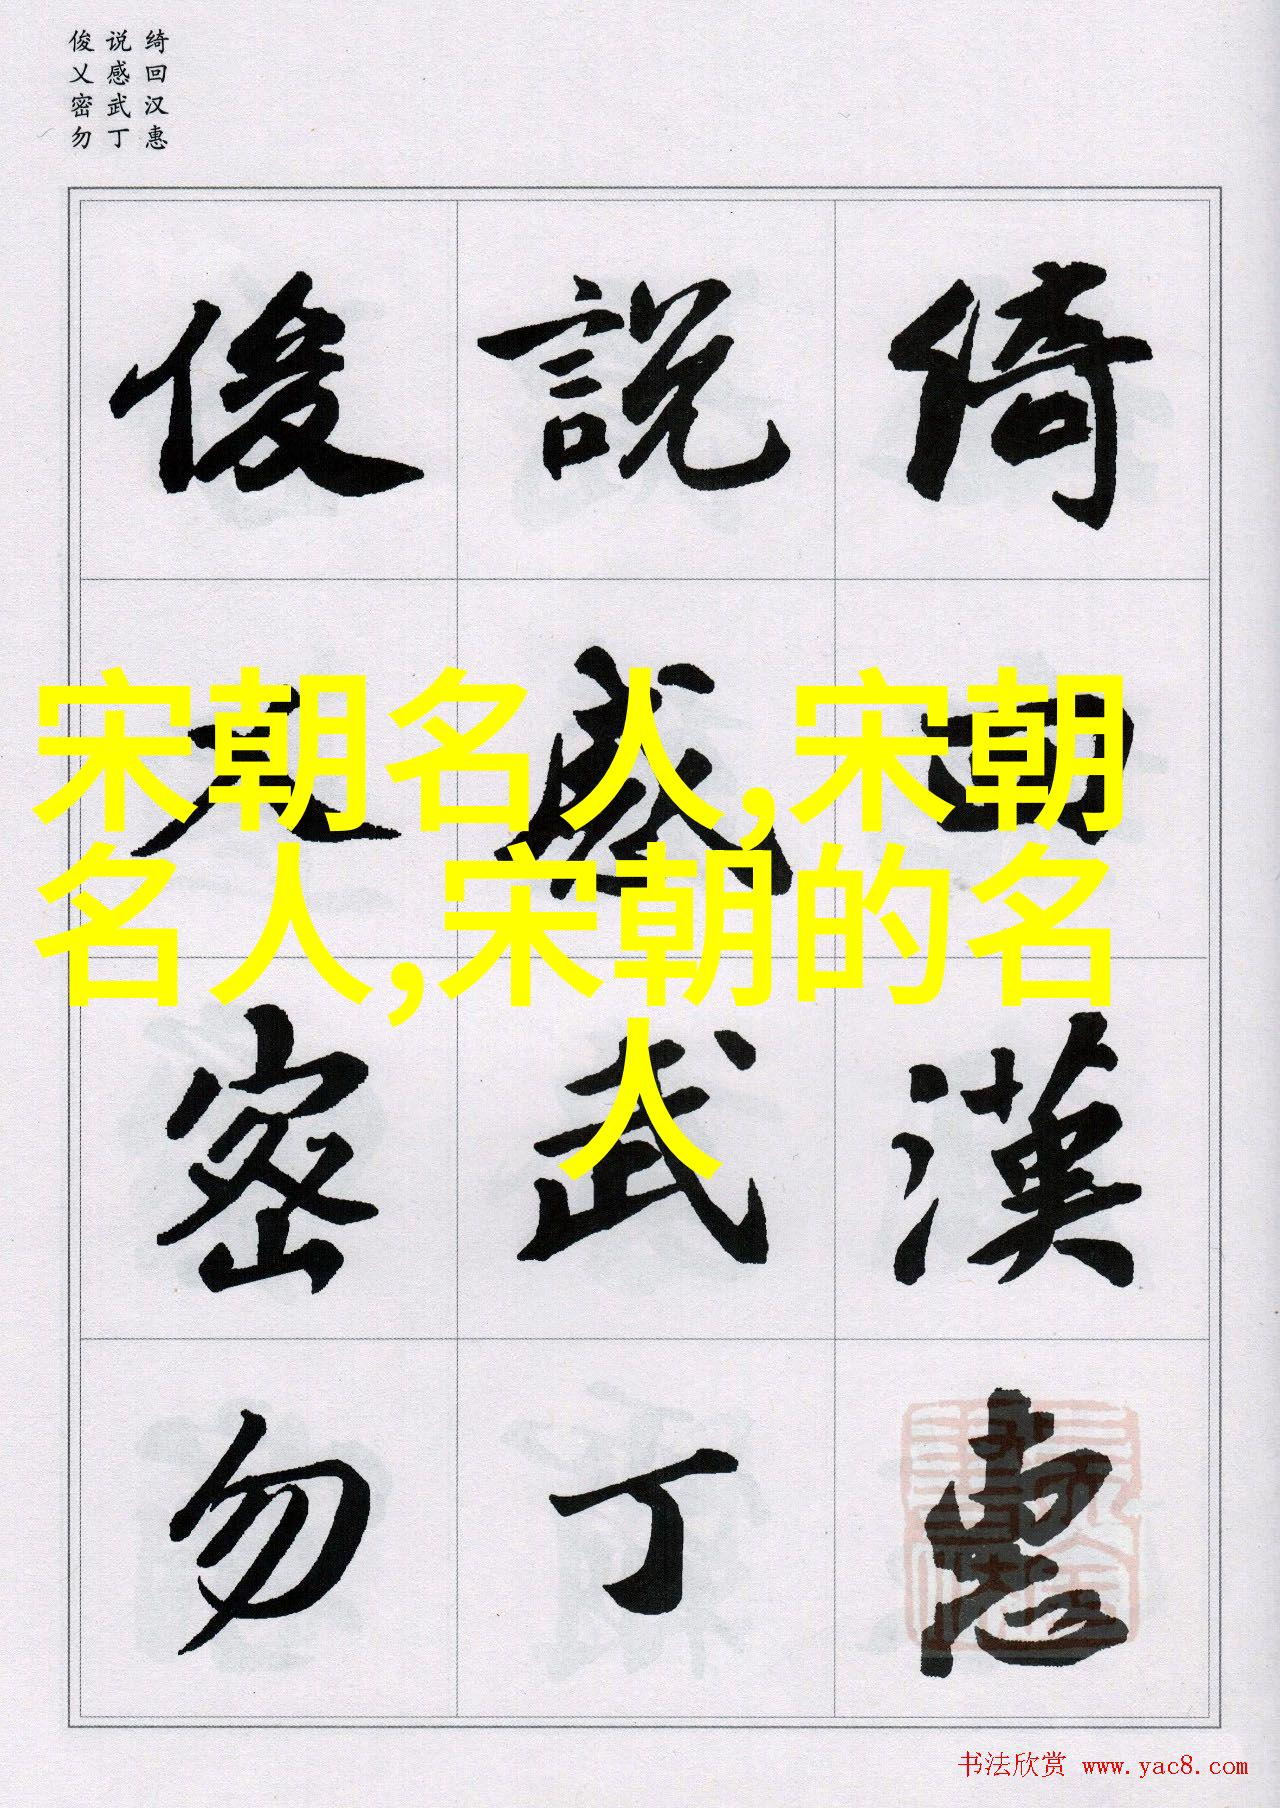 绮回汉惠
说感武丁
俊乂密勿
綺
回
漢
惠
說
感
武
丁
俊
乂
密
勿
宋朝名人,宋朝
名人,宋朝的名
人
书法欣赏 www.yac8.com